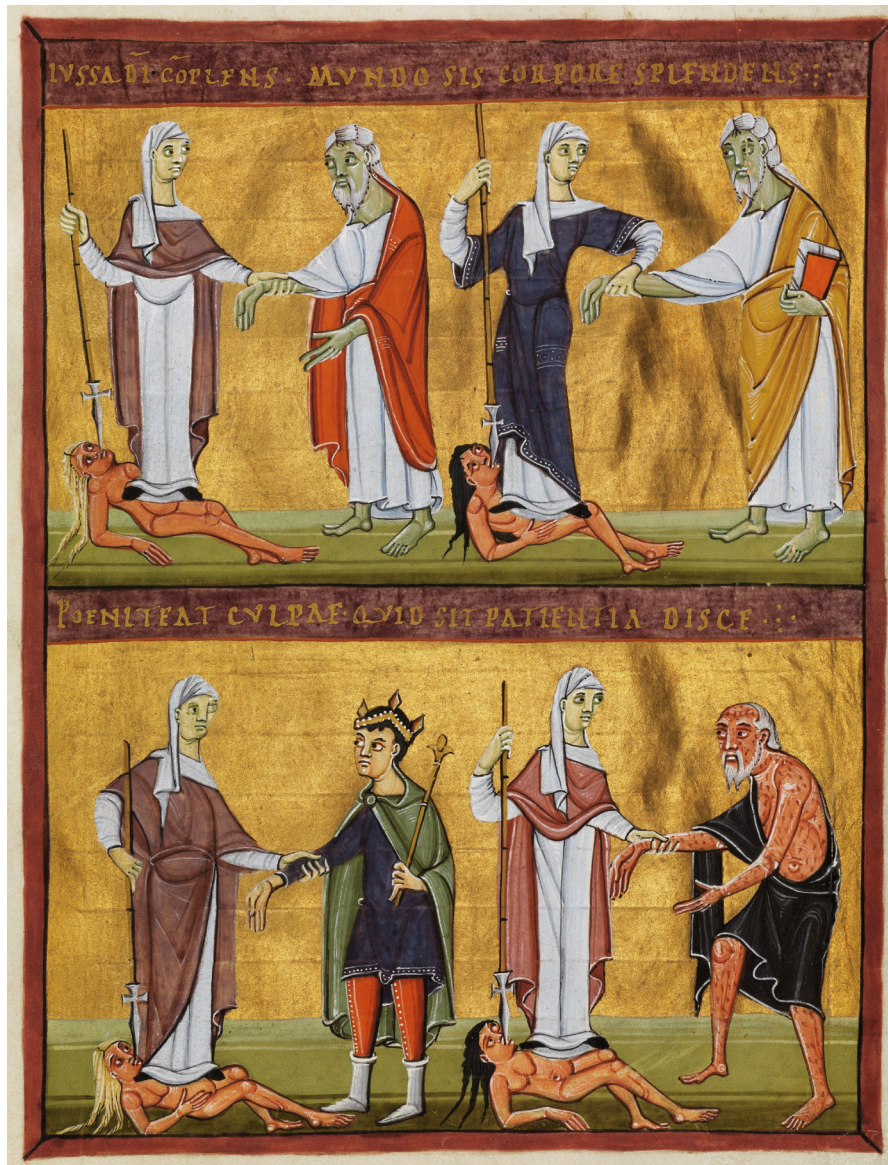 IVSSA DI COPLENS · MVNDO SIS CORPORE SPLENDENS
POENITEAT CVLPAE · QVID SIT PATIENTIA DISCE